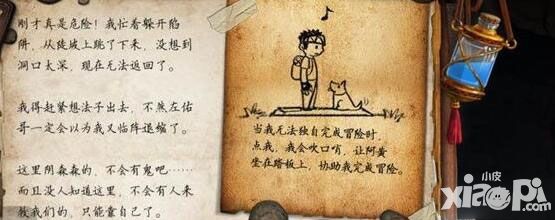 刚才真是危险！我忙着躲开陷
阱，从陡坡上跳了下来，没想到
洞口太深，现在无法返回了。
我得赶紧想法子出去，不然左佑
哥一定会以为我又临阵退缩了。
这里阴森森的，不会有鬼吧……
而且没人知道这里，不会有人来
救我们的，只能靠自己了。
当我无法独自完成冒险时，
点我，我会吹口哨，让阿黄
坐在踏板上，协助我完成冒险。
小皮
xiaopi.com